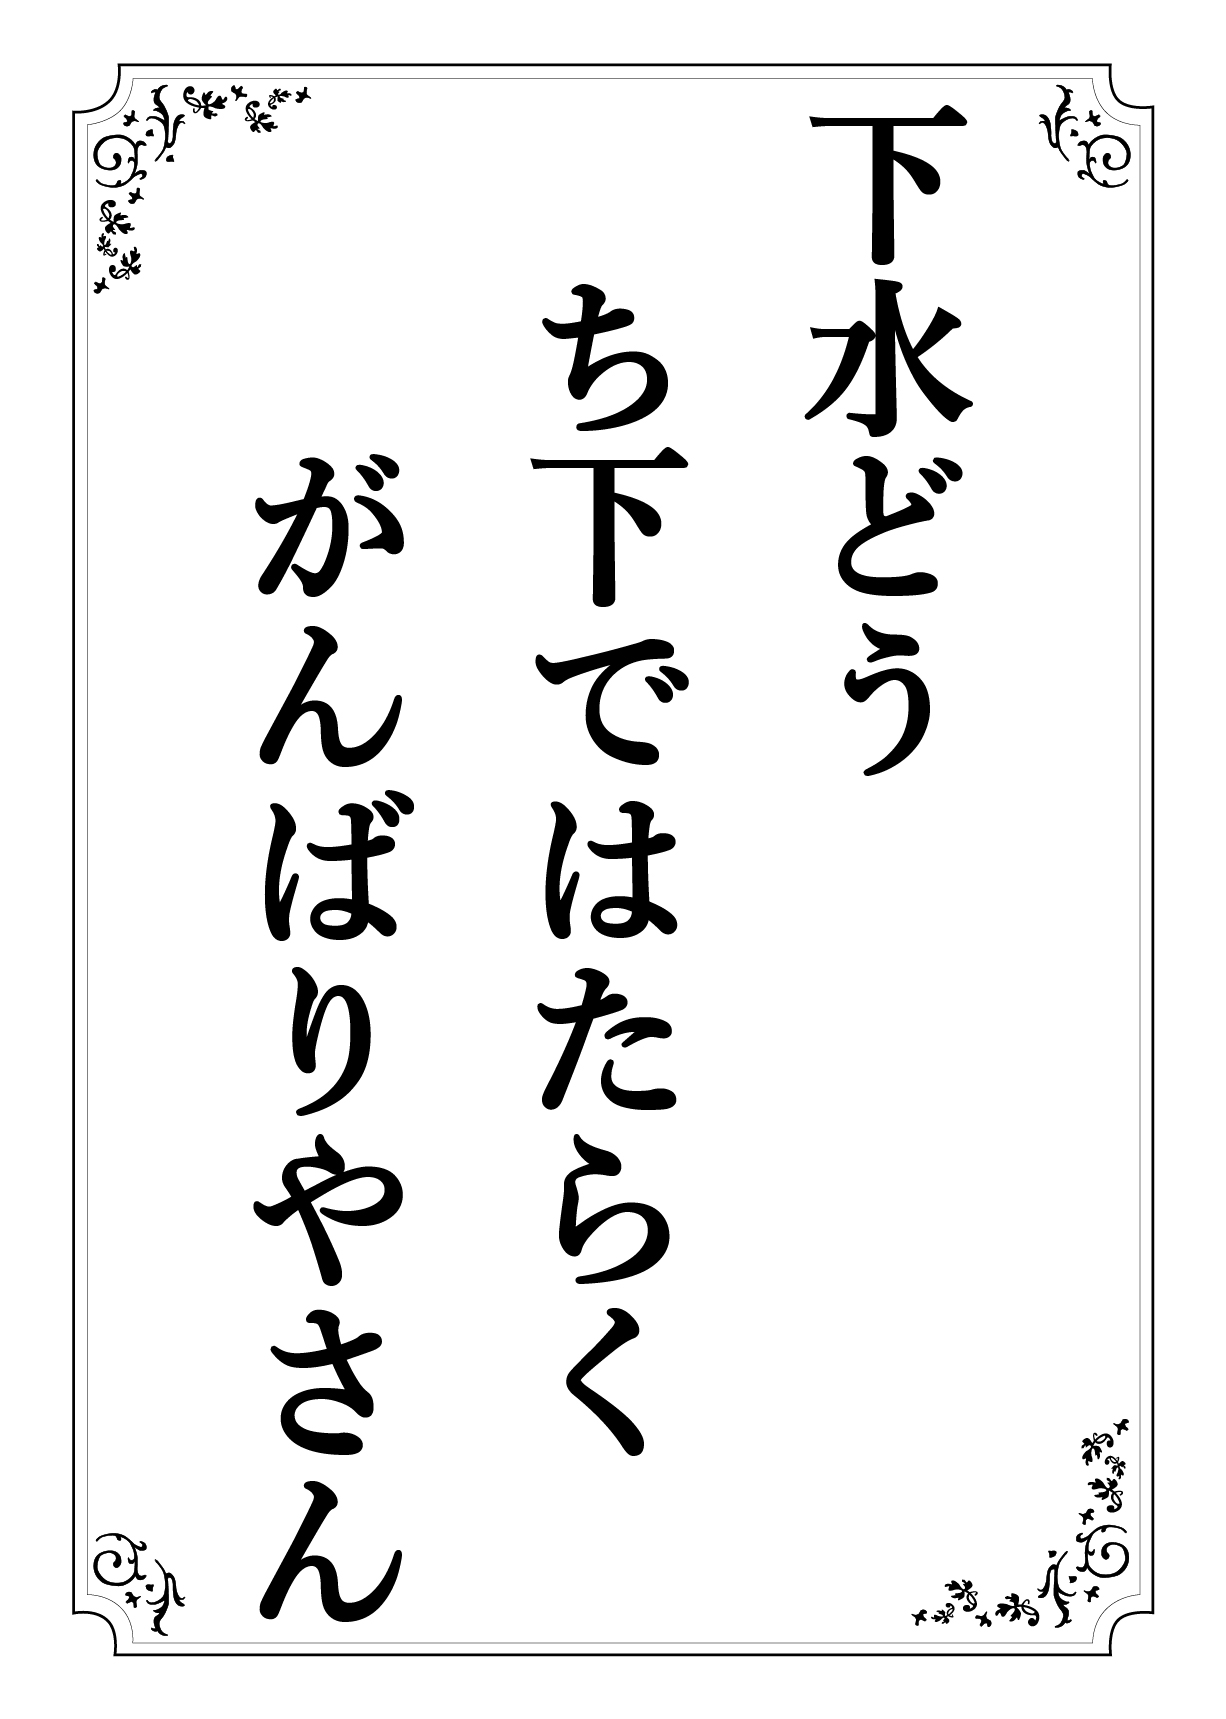 下水どう
ち下ではたらく
がんばりやさん